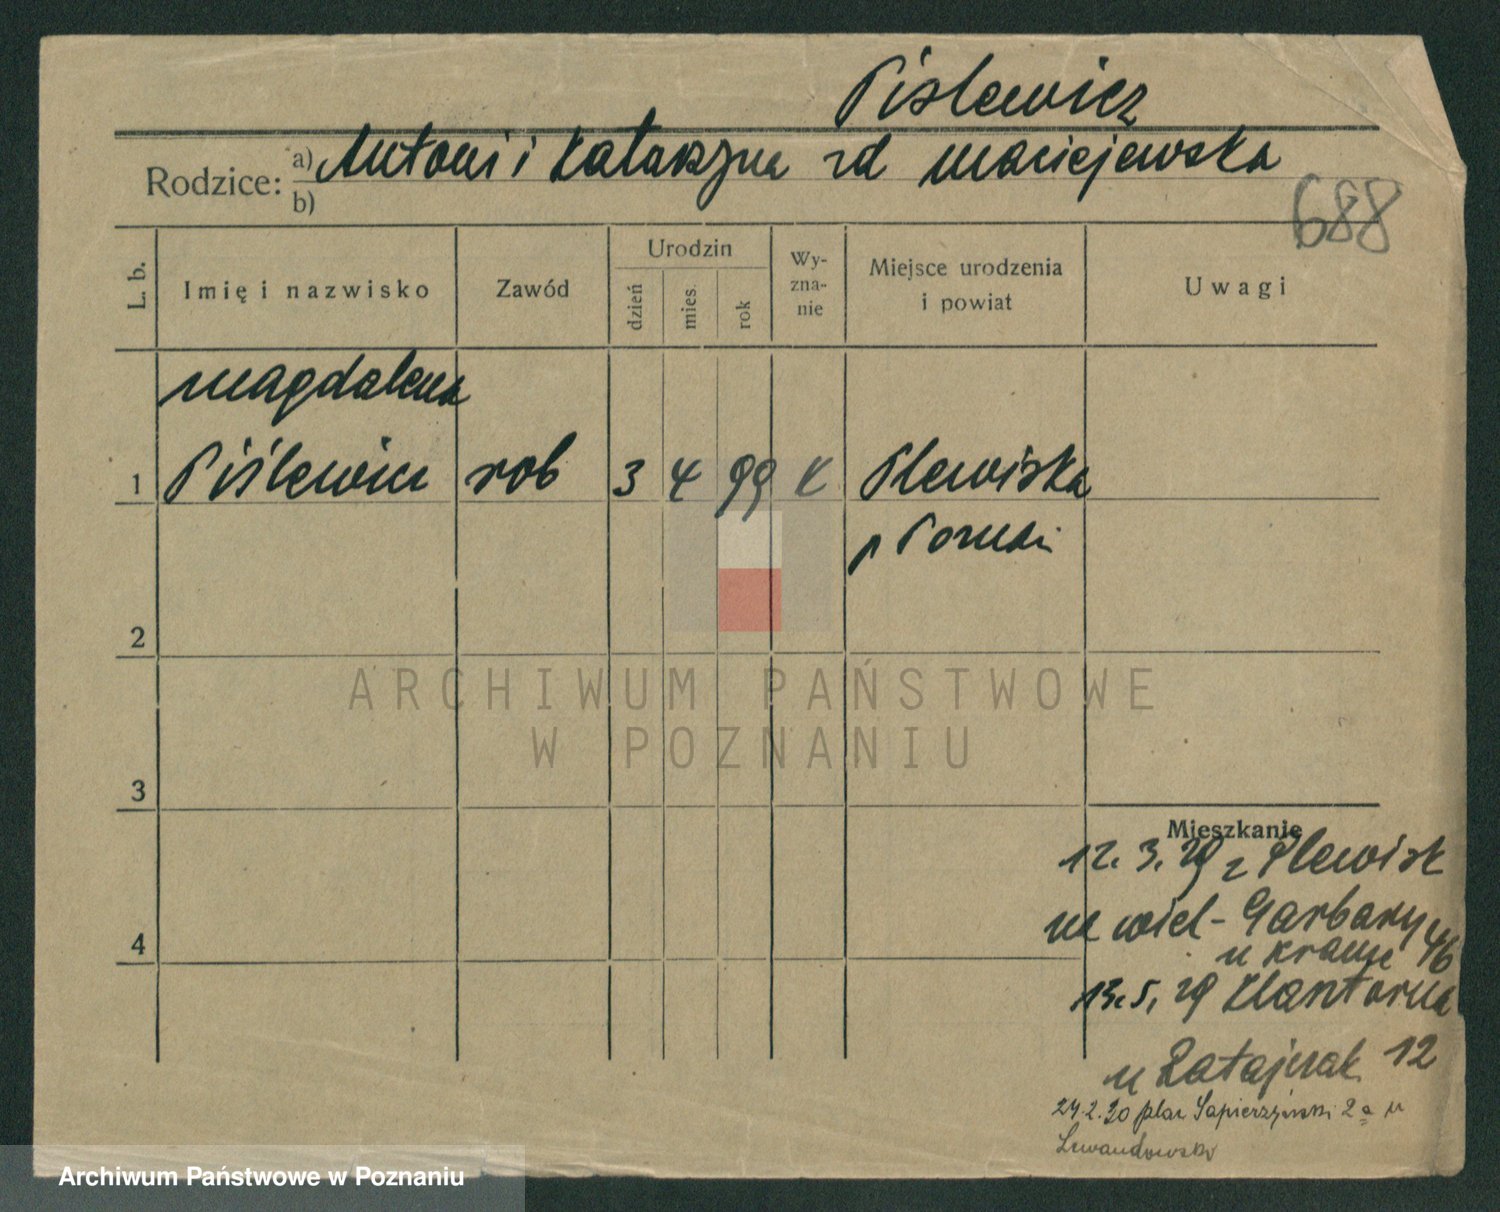 Pislewicz
Rodzice: a) Antoni i Katarzyna zd Maciejewska
b)
688
L. b.
Imię i nazwisko
Zawód
Urodzin
dzień
mies.
rok
Wy-
zna-
nie
Miejsce urodzenia
i powiat
Uwagi
Magdalena
1 Piślewicz rob 3 4 99 K Plewiska
p Poznań
2
ARCHIWUM PAŃSTWOWE
W POZNANIU
3
Mieszkanie
12. 3. 29 z Plewisk
na Wiel-Garbary 46
u Krause
13. 5. 29 Klasztorna 12
u Ratajczak
24.2.30 plac Sapierzyński 2a u
Lewandowski
4
Archiwum Państwowe w Poznaniu